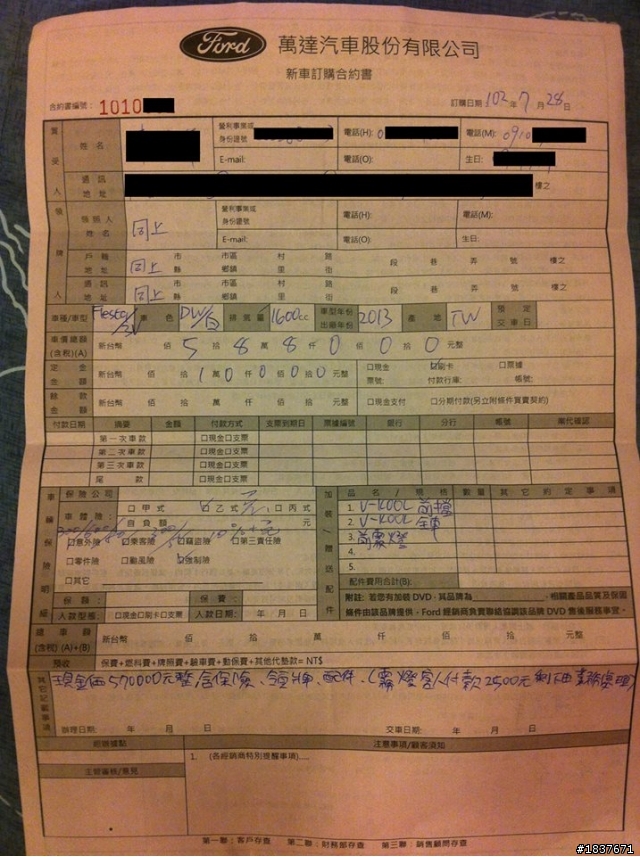 Ford 萬達汽車股份有限公司
新車訂購合約書
合約書編號：1010
訂購日期 102年 7月 28日
買受人 姓名 營利事業或身份證號 電話(H): 0 電話(M): 0910
E-mail: 電話(O): 生日:
通訊地址 樓之
領牌人 領照人姓名 同上 營利事業或身份證號 電話(H): 電話(M):
E-mail: 電話(O): 生日:
戶籍地址 同上 市縣 市區鄉鎮 村里 路街 段 巷 弄 號 樓之
通訊地址 同上 市縣 市區鄉鎮 村里 路街 段 巷 弄 號 樓之
車種/車型 Fiesta 車色 DW/白 排氣量 1600cc 車型年份 出廠年份 2013 產地 TW 預定交車日
車價總額(含稅)(A) 新台幣 佰 5 拾 8 萬 8 仟 0 佰 0 拾 0 元整
定金金額 新台幣 佰 拾 1 萬 0 仟 0 佰 0 拾 0 元整 口現金 口刷卡 口票據
票號: 付款行庫: 帳號:
餘款金額 新台幣 佰 拾 萬 仟 佰 拾 元整 口現金支付 口分期付款(另立附條件買賣契約)
付款日期 摘要 金額 付款方式 支票到期日 票據編號 銀行 分行 帳號 業代確認
第一次車款 口現金口支票
第二次車款 口現金口支票
第三次車款 口現金口支票
尾款 口現金口支票
車輛保險明細 保險公司 加裝/贈送配件 品名/規格 數量 其它約定事項
車體險: 口甲式 口乙式 口丙式 1. V-KOOL 前擋
自負額 元 2. V-KOOL 全車
口意外險 口乘客險 口竊盜險 口第三責任險 3. 前霧燈
口零件險 口颱風險 口強制險 4.
口其它 5.
配件費用合計(B):
保額: 保費: 附註: 若您有加裝 DVD，其品牌為 ，相關產品品質及保固
入款型態 口現金口刷卡口支票 入款日期: 年 月 日 條件由該品牌提供，Ford 經銷商負責聯絡協調該品牌 DVD 售後服務事宜。
總車額(含稅)(A)+(B) 新台幣 佰 拾 萬 仟 佰 拾 元整
預收 保費+燃料費+牌照費+驗車費+動保費+其他代墊款= NT$
其它記載事項 現金價570000元整含保險、領牌、配件、(霧燈客人付款2500元
辦理日期: 年 月 日 交車日期: 年 月 日
經銷據點 注意事項/顧客須知
主管審核/意見 1. (各經銷商特別提醒事項)....
第一聯：客戶存查 第二聯：財務部存查 第三聯：銷售顧問存查
#1837671